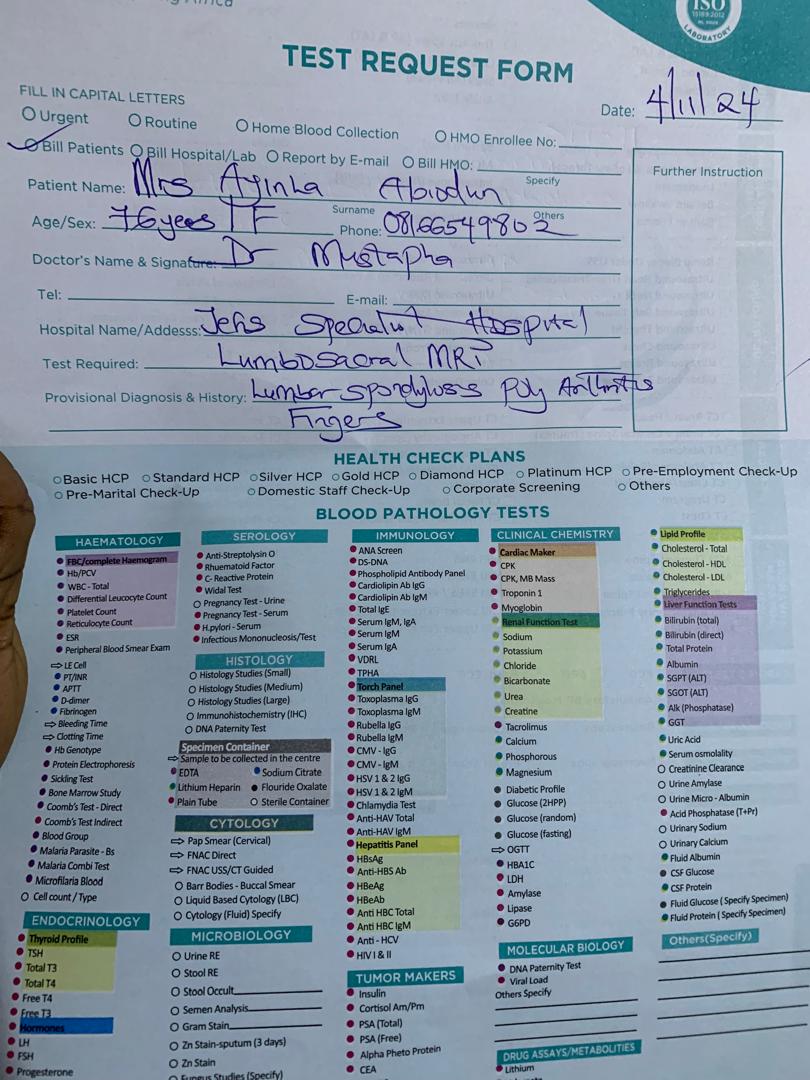 ISO
15189:2012
LABORATORY
TEST REQUEST FORM
FILL IN CAPITAL LETTERS
Date: 4/11/24
Urgent Routine Home Blood Collection HMO Enrollee No:
Bill Patients Bill Hospital/Lab Report by E-mail Bill HMO:
Specify
Further Instruction
Patient Name: Mrs Ayinka Abiodun
Surname Others
Age/Sex: 76 years F Phone: 08166549802
Doctor's Name & Signature: Dr Mustapha
Tel: E-mail:
Hospital Name/Addesss: Specialist Hospital
Test Required: Lumbosacral MRI
Provisional Diagnosis & History: Lumbar spondylosis Poly Arthritis
Fingers
HEALTH CHECK PLANS
Basic HCP Standard HCP Silver HCP Gold HCP Diamond HCP Platinum HCP Pre-Employment Check-Up
Pre-Marital Check-Up Domestic Staff Check-Up Corporate Screening Others
BLOOD PATHOLOGY TESTS
HAEMATOLOGY
FBC/complete Haemogram
Hb/PCV
WBC - Total
Differential Leucocyte Count
Platelet Count
Reticulocyte Count
ESR
Peripheral Blood Smear Exam
LE Cell
PT/INR
APTT
D-dimer
Fibrinogen
Bleeding Time
Clotting Time
Hb Genotype
Protein Electrophoresis
Sickling Test
Bone Marrow Study
Coomb's Test - Direct
Coomb's Test Indirect
Blood Group
Malaria Parasite - Bs
Malaria Combi Test
Microfilaria Blood
Cell count / Type
ENDOCRINOLOGY
Thyroid Profile
TSH
Total T3
Total T4
Free T4
Free T3
Hormones
LH
FSH
Progesterone
SEROLOGY
Anti-Streptolysin O
Rheumatoid Factor
C- Reactive Protein
Widal Test
Pregnancy Test - Urine
Pregnancy Test - Serum
H.pylori - Serum
Infectious Mononucleosis/Test
HISTOLOGY
Histology Studies (Small)
Histology Studies (Medium)
Histology Studies (Large)
Immunohistochemistry (IHC)
DNA Paternity Test
Specimen Container
Sample to be collected in the centre
EDTA Sodium Citrate
Lithium Heparin Flouride Oxalate
Plain Tube Sterile Container
CYTOLOGY
Pap Smear (Cervical)
FNAC Direct
FNAC USS/CT Guided
Barr Bodies - Buccal Smear
Liquid Based Cytology (LBC)
Cytology (Fluid) Specify
MICROBIOLOGY
Urine RE
Stool RE
Stool Occult
Semen Analysis
Gram Stain
Zn Stain-sputum (3 days)
Zn Stain
Fungus Studies (Specify)
IMMUNOLOGY
ANA Screen
DS-DNA
Phospholipid Antibody Panel
Cardiolipin Ab IgG
Cardiolipin Ab IgM
Total IgE
Serum IgM, IgA
Serum IgM
Serum IgA
VDRL
TPHA
Torch Panel
Toxoplasma IgG
Toxoplasma IgM
Rubella IgG
Rubella IgM
CMV - IgG
CMV - IgM
HSV 1 & 2 IgG
HSV 1 & 2 IgM
Chlamydia Test
Anti-HAV Total
Anti-HAV IgM
Hepatitis Panel
HBsAg
Anti-HBS Ab
HBeAg
HBeAb
Anti HBC Total
Anti HBC IgM
Anti - HCV
HIV I & II
TUMOR MAKERS
Insulin
Cortisol Am/Pm
PSA (Total)
PSA (Free)
Alpha Pheto Protein
CEA
CLINICAL CHEMISTRY
Cardiac Maker
CPK
CPK, MB Mass
Troponin 1
Myoglobin
Renal Function Test
Sodium
Potassium
Chloride
Bicarbonate
Urea
Creatine
Tacrolimus
Calcium
Phosphorous
Magnesium
Diabetic Profile
Glucose (2HPP)
Glucose (random)
Glucose (fasting)
OGTT
HBA1C
LDH
Amylase
Lipase
G6PD
MOLECULAR BIOLOGY
DNA Paternity Test
Viral Load
Others Specify
DRUG ASSAYS/METABOLITIES
Lithium
Lipid Profile
Cholesterol - Total
Cholesterol - HDL
Cholesterol - LDL
Triglycerides
Liver Function Tests
Bilirubin (total)
Bilirubin (direct)
Total Protein
Albumin
SGPT (ALT)
SGOT (ALT)
Alk (Phosphatase)
GGT
Uric Acid
Serum osmolality
Creatinine Clearance
Urine Amylase
Urine Micro - Albumin
Acid Phosphatase (T+Pr)
Urinary Sodium
Urinary Calcium
Fluid Albumin
CSF Glucose
CSF Protein
Fluid Glucose ( Specify Specimen)
Fluid Protein ( Specify Specimen)
Others(Specify)